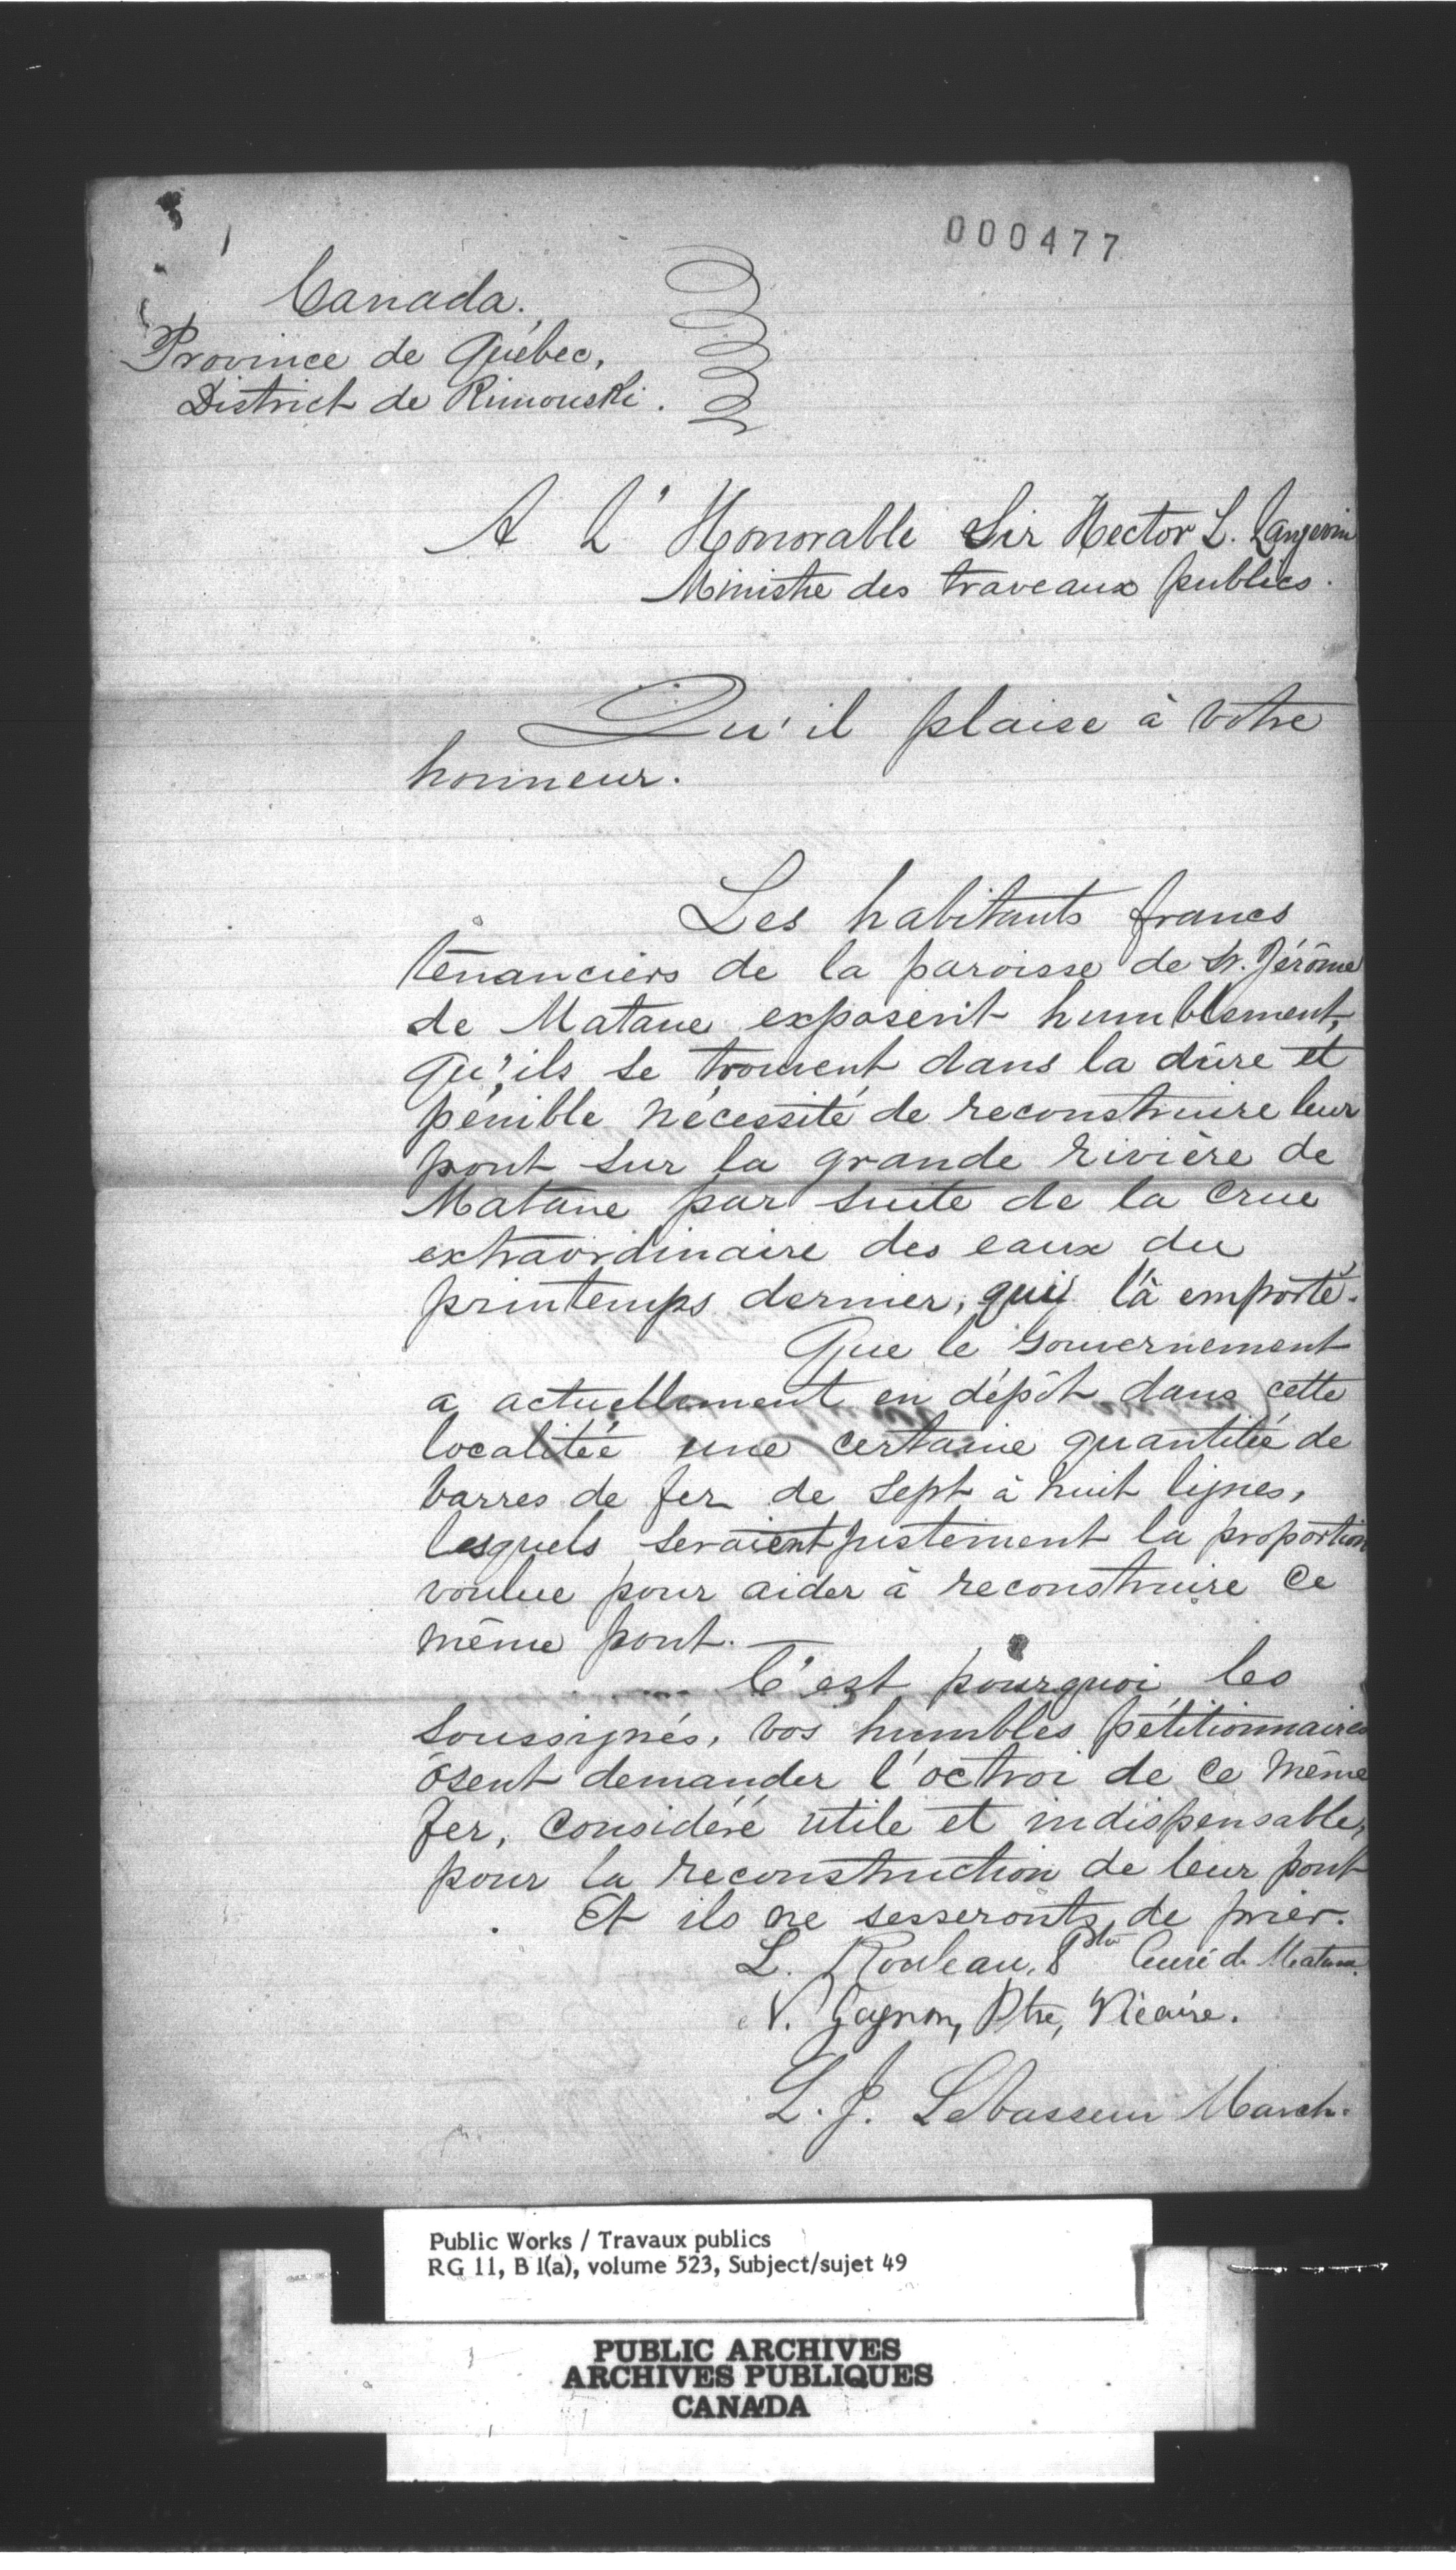 000477
Canada.
Province de Québec,
District de Rimouski.
A L' Honorable Sir Hector L. Langevin
Ministre des traveaux publics.
Qu'il plaise à votre
honneur.
Les habitants francs
tenanciers de la paroisse de St. Jérôme
de Matane exposent humblement,
qu'ils se trouvent dans la dûre et
pénible nécessité de reconstruire leur
pont sur la grande rivière de
Matane par suite de la crue
extraordinaire des eaux du
printemps dernier, qui l'à emporté.
Que le gouvernement
a actuellement en dépôt dans cette
localitée une certaine quantitée de
barres de fer de sept à huit lignes,
lesquels seraient justement la proportion
voulue pour aider à reconstruire ce
même pont. —
C'est pourquoi les
soussignés, vos humbles pétitionnaires
ôsent demander l'octroi de ce même
fer, considéré utile et indispensable,
pour la reconstruction de leur pont
Et ils ne sesseronts, de prier.
L. Rouleau, Ptre Curé de Matane.
V. Gagnon, Ptre, Vicaire.
L. J. Levasseur March.
Public Works / Travaux publics
RG 11, B 1(a), volume 523, Subject/sujet 49
PUBLIC ARCHIVES
ARCHIVES PUBLIQUES
CANADA